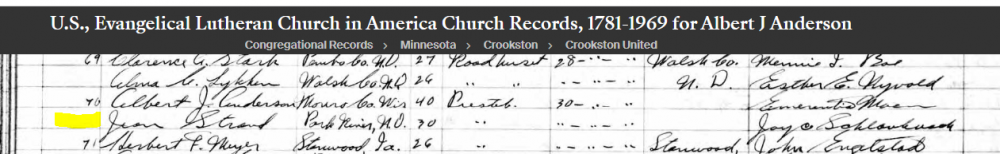 U.S., Evangelical Lutheran Church in America Church Records, 1781-1969 for Albert J Anderson
Congregational Records > Minnesota > Crookston > Crookston United
69 Clarence A. Stark Pembo Co. N.D. 27 28 - " - " Walsh Co. Minnie I. Boe
Alma C. Lykken Walsh Co. N.D. 26 " " " - " - " N. D. Esther E. Nyvold
70 Albert J. Anderson Monro Co. Wis 40 Presteb. 30 - " - "
Jean Strand Park River, N.D. 30 " " - " - " Joyce
71 Herbert F. Meyer Stanwood, Ia. 26 " " - " - " Stanwood, John